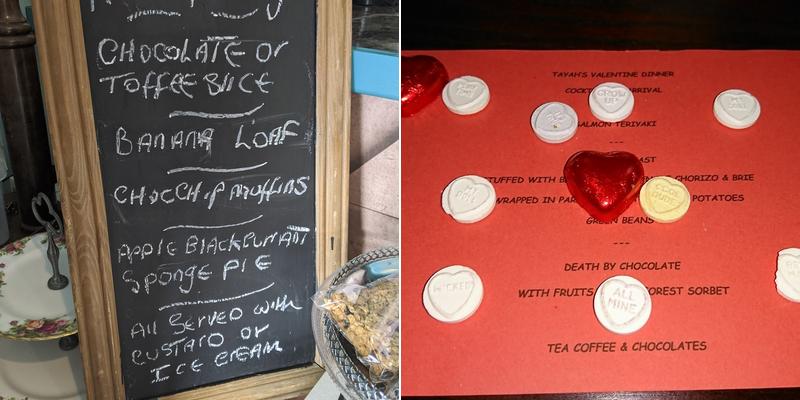 CHOCOLATE or
TOFFEE SLICE
BANANA LOAF
CHOCCHIP MUFFINS
APPLE BLACKCURRANT
SPONGE PIE
All SERVED with
CUSTARD or
ICE CREAM
TAYAH'S VALENTINE DINNER
GROW UP
MY
SALMON TERIYAKI
---
STUFFED WITH CHORIZO & BRIE
MY
COOL DUDE
WRAPPED IN POTATOES
GREEN BEANS
---
DEATH BY CHOCOLATE
WICKED
WITH FRUITS FOREST SORBET
ALL MINE
TEA COFFEE & CHOCOLATES